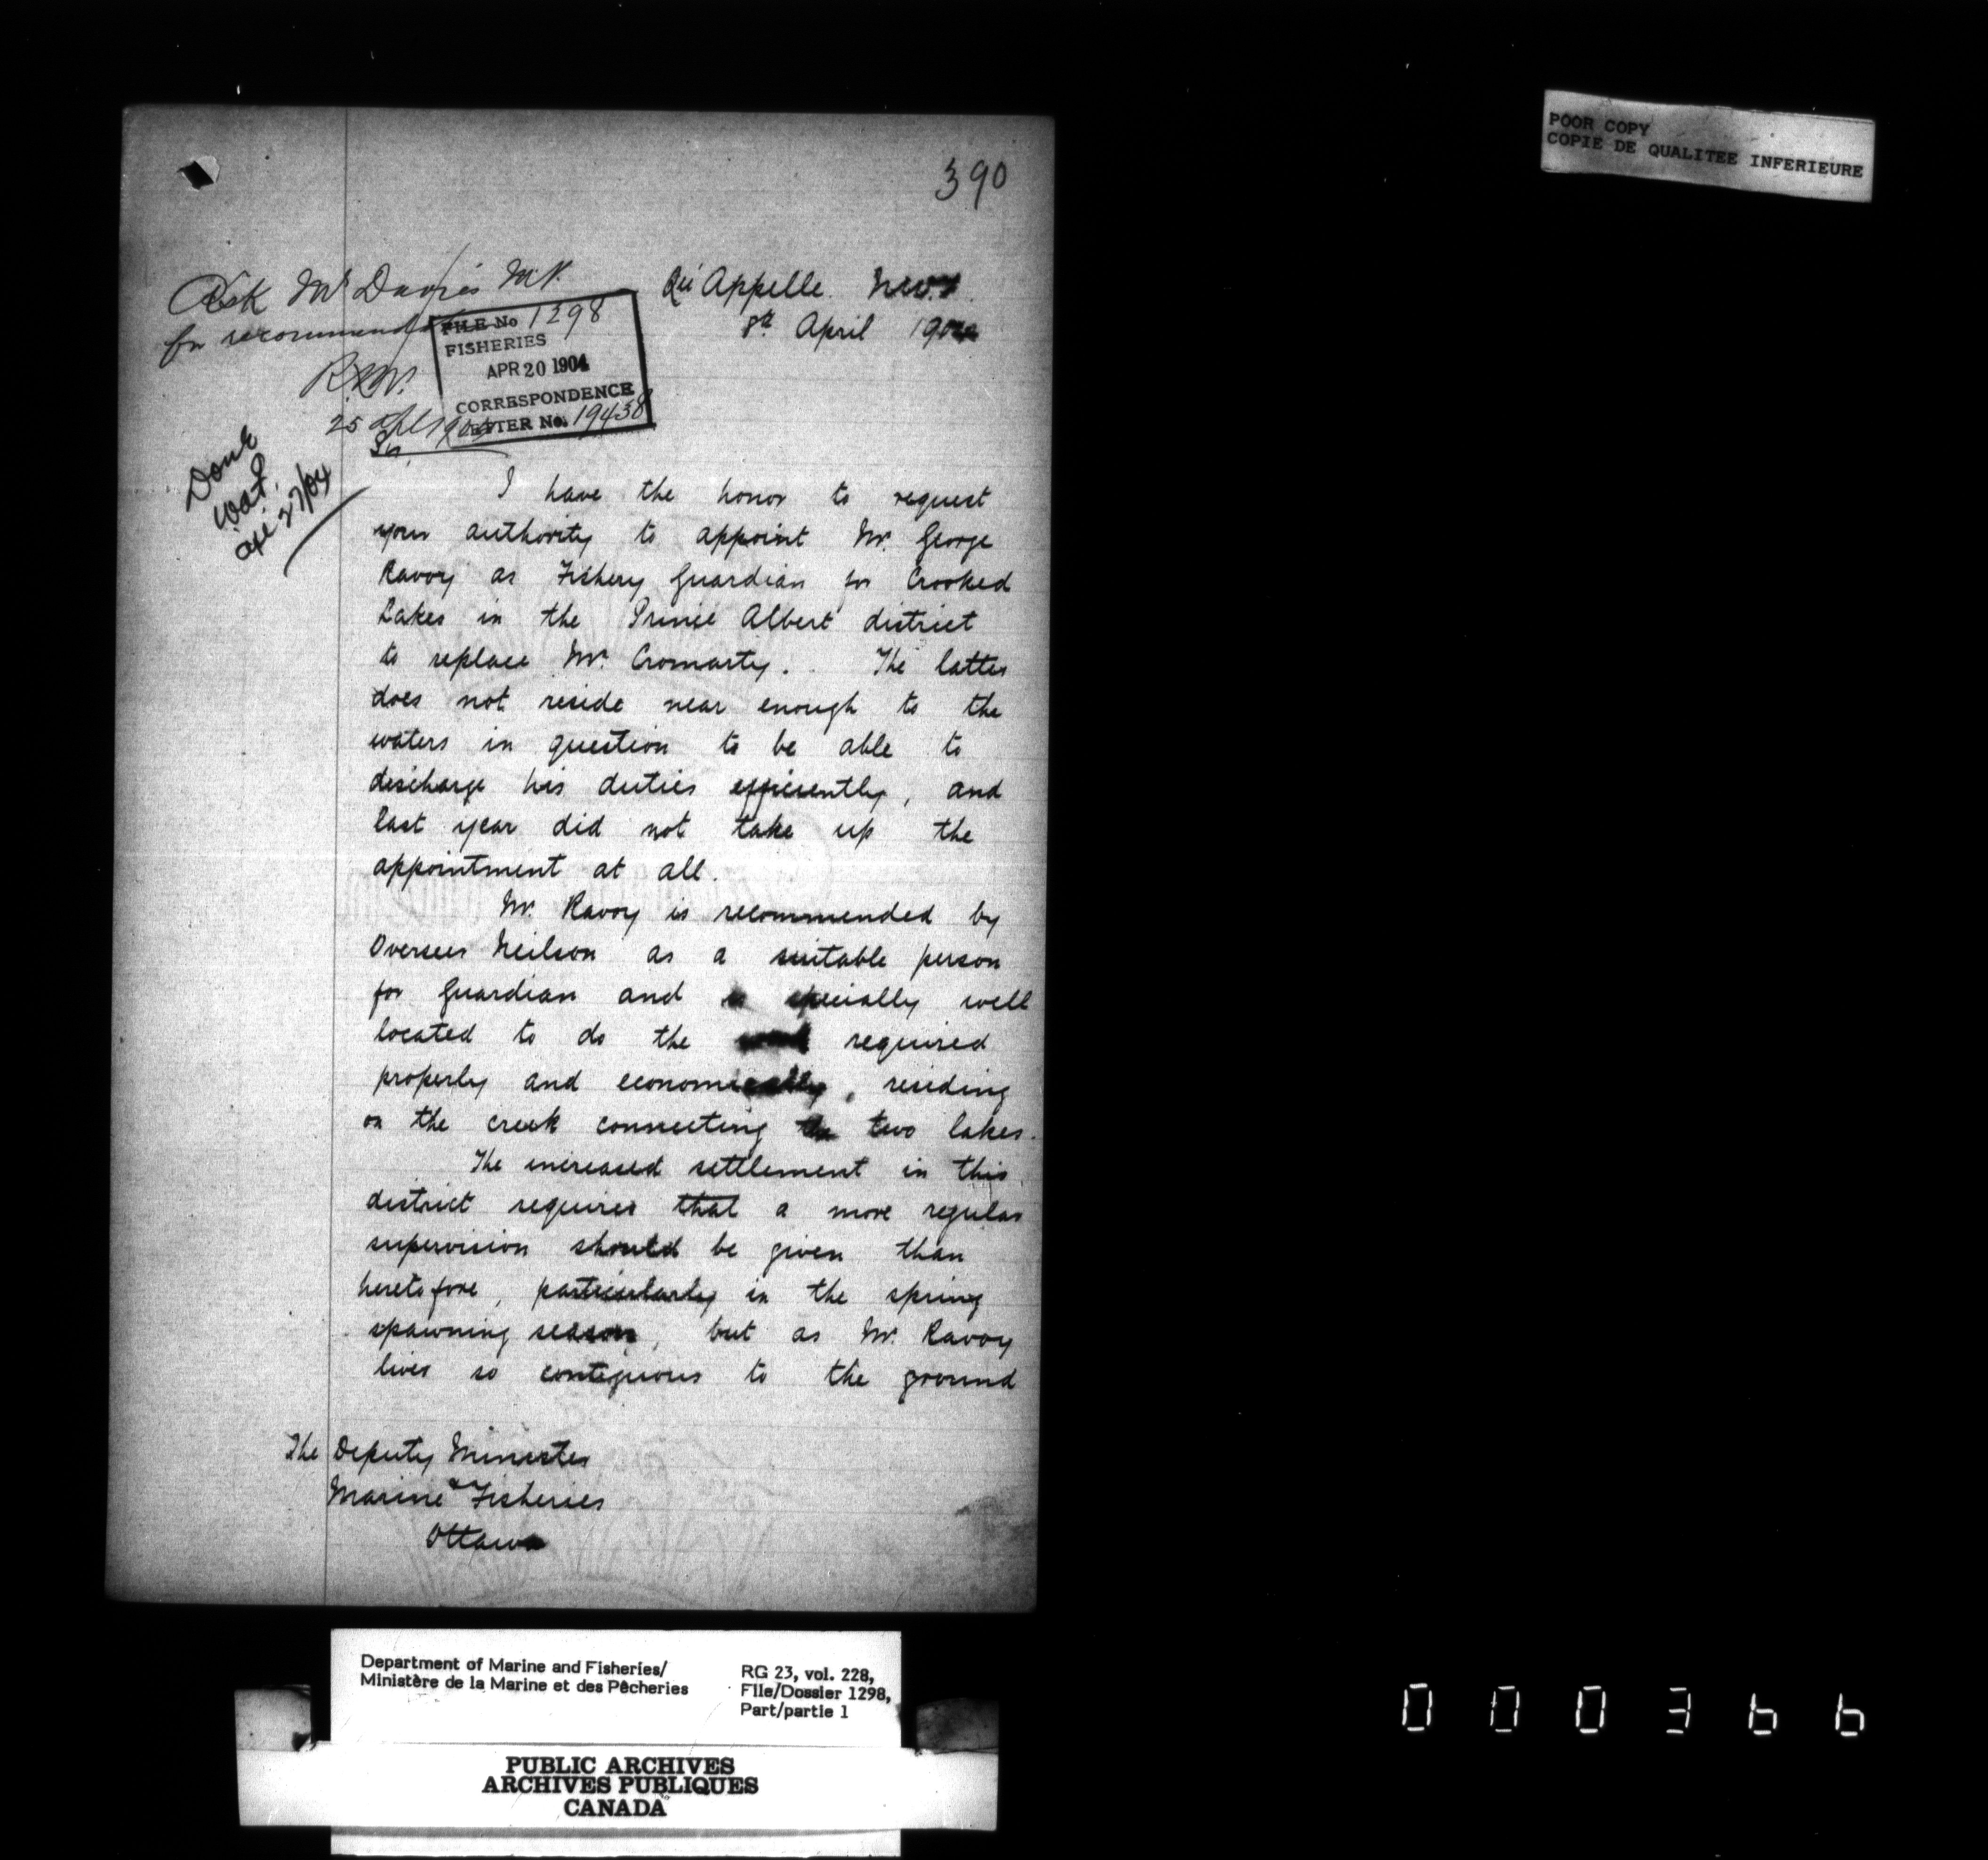 POOR COPY
COPIE DE QUALITEE INFERIEURE
390
Ask Mr Davis M.P.
for recommendation
R.N.V.
25 Apl 1904
Done
W.a.P.
Apl 27/04
FILE No 1298
FISHERIES
APR 20 1904
CORRESPONDENCE
LETTER No. 19438
Qu'Appelle. N.W.T.
8th April 1904
Sir,
I have the honor to request
your authority to appoint Mr. George
Ravoy as Fishery Guardian for Crooked
Lakes in the Prince Albert district
to replace Mr. Cromarty. The latter
does not reside near enough to the
waters in question to be able to
discharge his duties efficiently, and
last year did not take up the
appointment at all.
Mr. Ravoy is recommended by
Overseer Neilson as a suitable person
for Guardian and is specially well
located to do the work required
properly and economically, residing
on the creek connecting the two lakes.
The increased settlement in this
district requires that a more regular
supervision should be given than
heretofore, particularly in the spring
spawning season, but as Mr. Ravoy
lives so contiguous to the ground
The Deputy Minister
Marine & Fisheries
Ottawa
Department of Marine and Fisheries/
Ministère de la Marine et des Pêcheries
RG 23, vol. 228,
File/Dossier 1298,
Part/partie 1
PUBLIC ARCHIVES
ARCHIVES PUBLIQUES
CANADA
000366